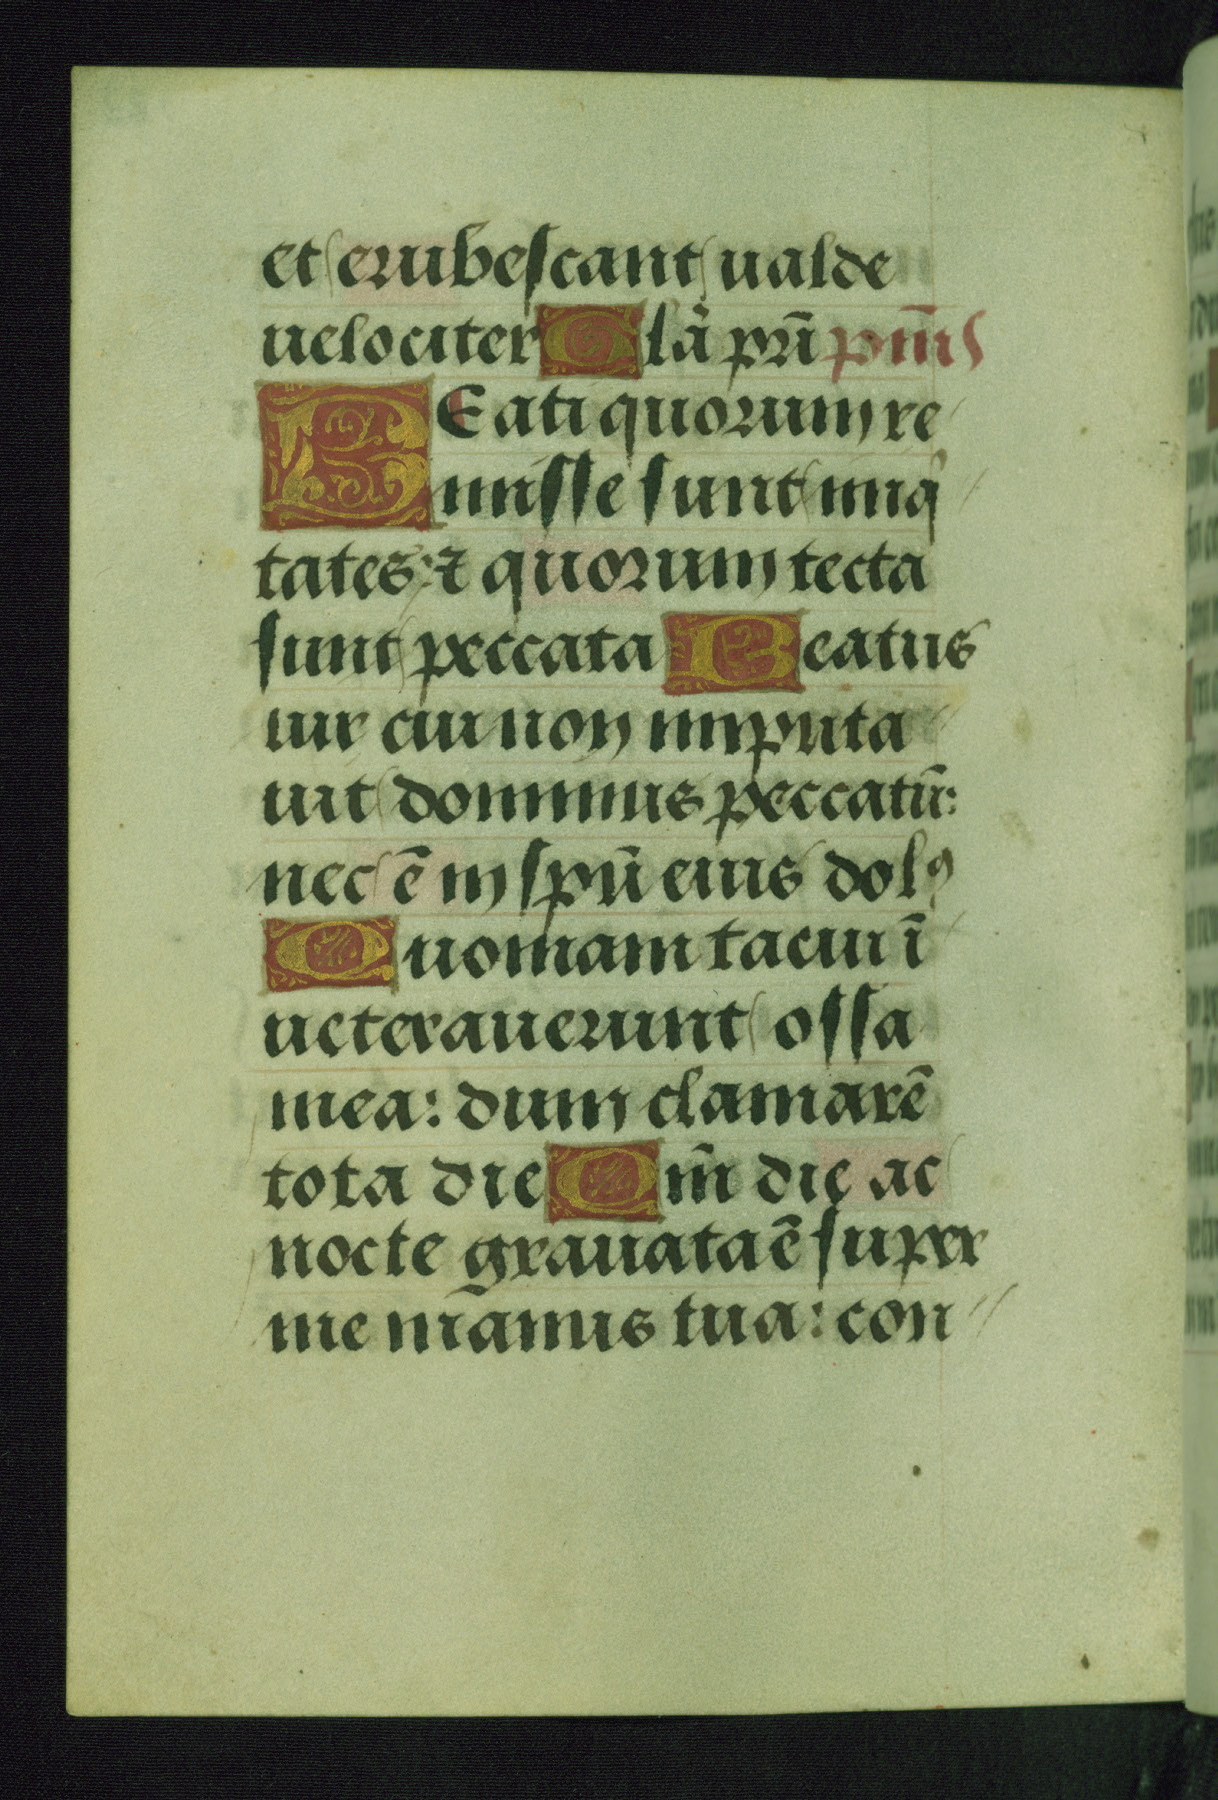 et erubescant ualde
uelociter Glã prĩ psalmus
BEati quorum re
misse sunt iniq̃
tates: ⁊ quorum tecta
sunt peccata Beatus
uir cui non imputa
uit dominus peccatũ:
nec ẽ in spũ eius dolꝰ
Quoniam tacui ĩ
ueterauerunt ossa
mea: dum clamarẽ
tota die Qm̃ die ac
nocte grauata ẽ super
me manus tua: con